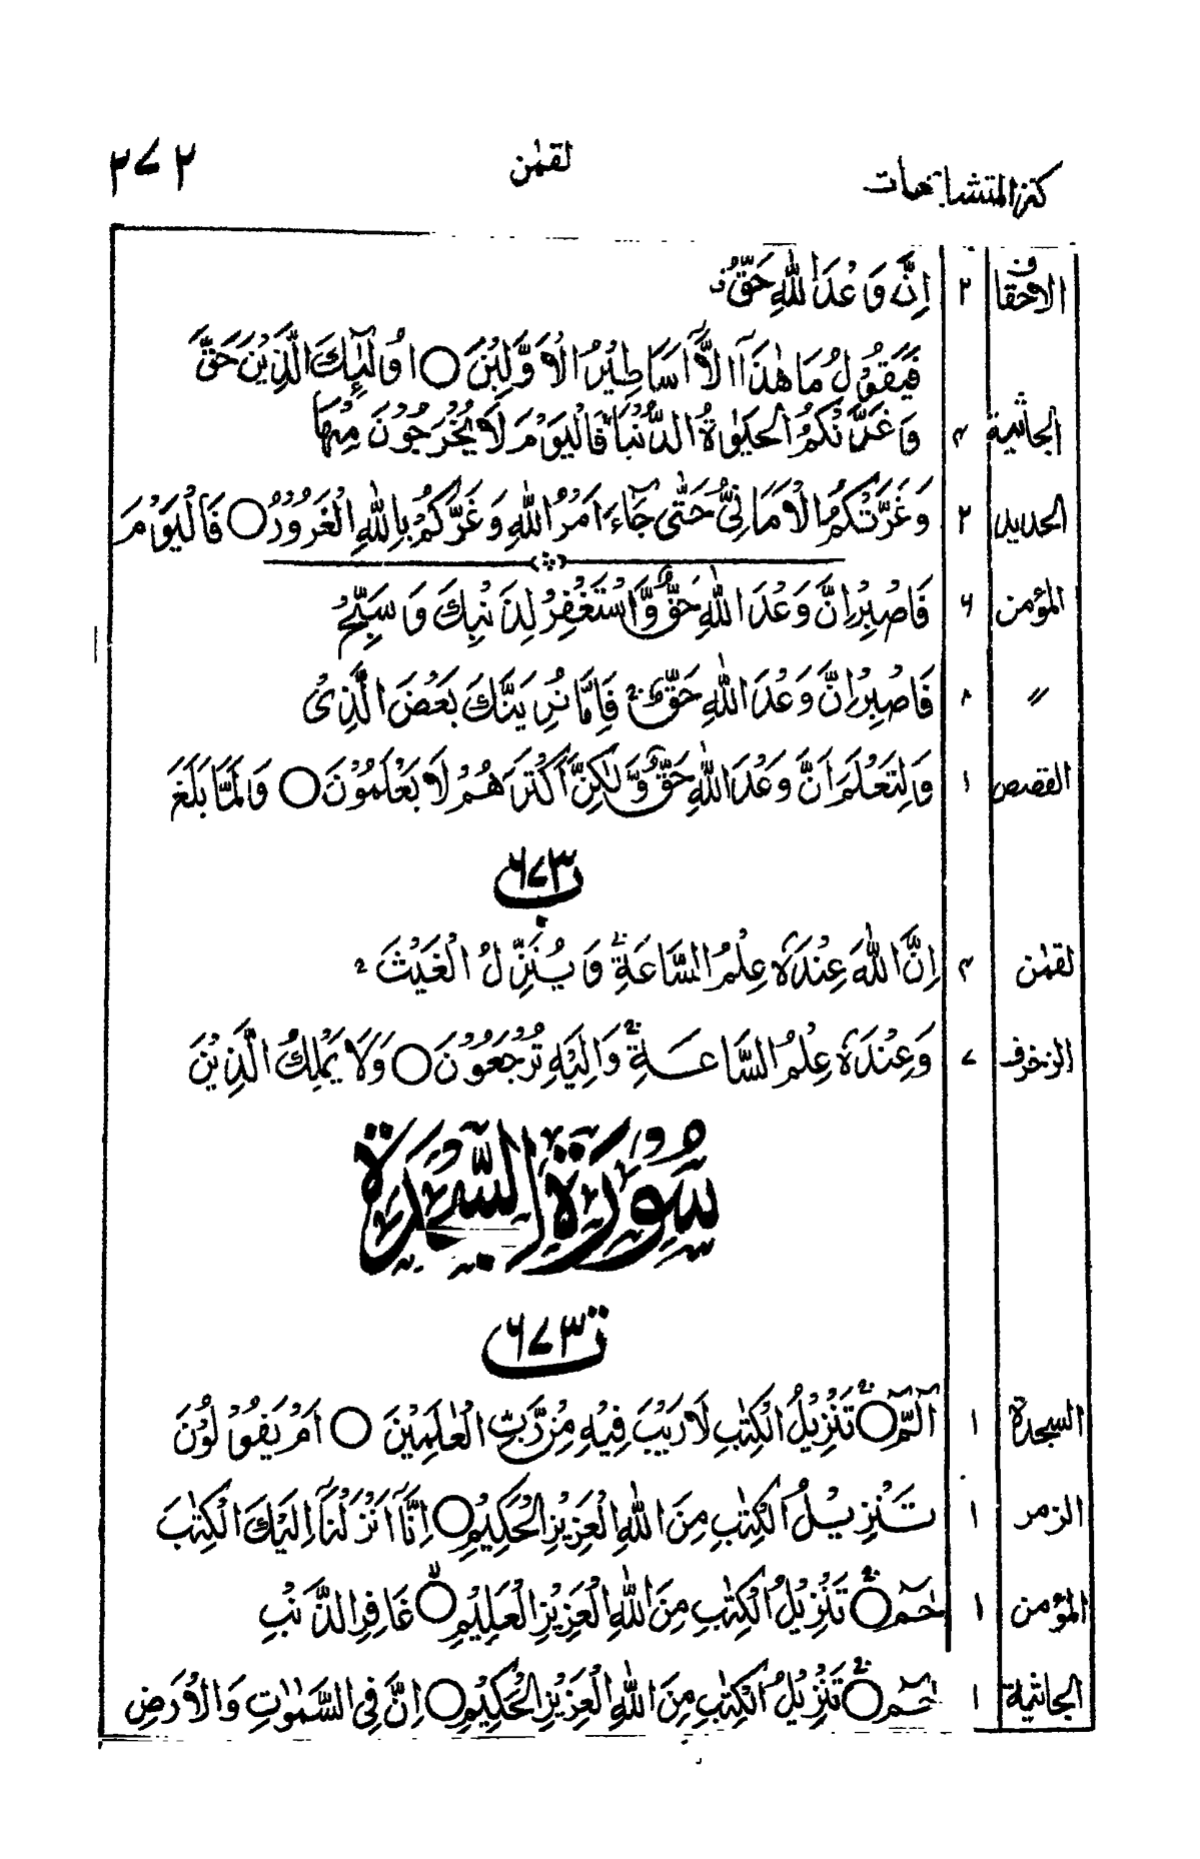 كنز المتشابهات لقمٰن ٢٧٢
الاحقاف ٢ اِنَّ وَعْدَ اللّٰهِ حَقٌّ
فَيَقُوْلُ مَا هٰذَآ اِلَّآ اَسَاطِيْرُ الْاَوَّلِيْنَ ○ اُولٰٓئِكَ الَّذِيْنَ حَقَّ
الجاثية ٤ وَغَرَّتْكُمُ الْحَيٰوةُ الدُّنْيَا فَالْيَوْمَ لَا يُخْرَجُوْنَ مِنْهَا
الحديد ٢ وَغَرَّتْكُمُ الْاَمَانِيُّ حَتّٰى جَآءَ اَمْرُ اللّٰهِ وَغَرَّكُمْ بِاللّٰهِ الْغَرُوْرُ ○ فَالْيَوْمَ
المؤمن ٦ فَاصْبِرْ اِنَّ وَعْدَ اللّٰهِ حَقٌّ وَّاسْتَغْفِرْ لِذَنْۢبِكَ وَسَبِّحْ
〃 ٨ فَاصْبِرْ اِنَّ وَعْدَ اللّٰهِ حَقٌّ فَاِمَّا نُرِيَنَّكَ بَعْضَ الَّذِيْ
القصص ١ وَلِتَعْلَمَ اَنَّ وَعْدَ اللّٰهِ حَقٌّ وَّلٰكِنَّ اَكْثَرَهُمْ لَا يَعْلَمُوْنَ ○ وَلَمَّا بَلَغَ
ب ٦٧٣
لقمٰن ٤ اِنَّ اللّٰهَ عِنْدَهٗ عِلْمُ السَّاعَةِ وَيُنَزِّلُ الْغَيْثَ
الزخرف ٧ وَعِنْدَهٗ عِلْمُ السَّاعَةِ وَاِلَيْهِ تُرْجَعُوْنَ ○ وَلَا يَمْلِكُ الَّذِيْنَ
سُوْرَةُ السَّجْدَةِ
ت ٦٧٣
السجدة ١ الٓمّٓ ○ تَنْزِيْلُ الْكِتٰبِ لَا رَيْبَ فِيْهِ مِنْ رَّبِّ الْعٰلَمِيْنَ ○ اَمْ يَقُوْلُوْنَ
الزمر ١ تَنْزِيْلُ الْكِتٰبِ مِنَ اللّٰهِ الْعَزِيْزِ الْحَكِيْمِ ○ اِنَّآ اَنْزَلْنَآ اِلَيْكَ الْكِتٰبَ
المؤمن ١ حٰمٓ ○ تَنْزِيْلُ الْكِتٰبِ مِنَ اللّٰهِ الْعَزِيْزِ الْعَلِيْمِ ○ غَافِرِ الذَّنْۢبِ
الجاثية ١ حٰمٓ ○ تَنْزِيْلُ الْكِتٰبِ مِنَ اللّٰهِ الْعَزِيْزِ الْحَكِيْمِ ○ اِنَّ فِي السَّمٰوٰتِ وَالْاَرْضِ